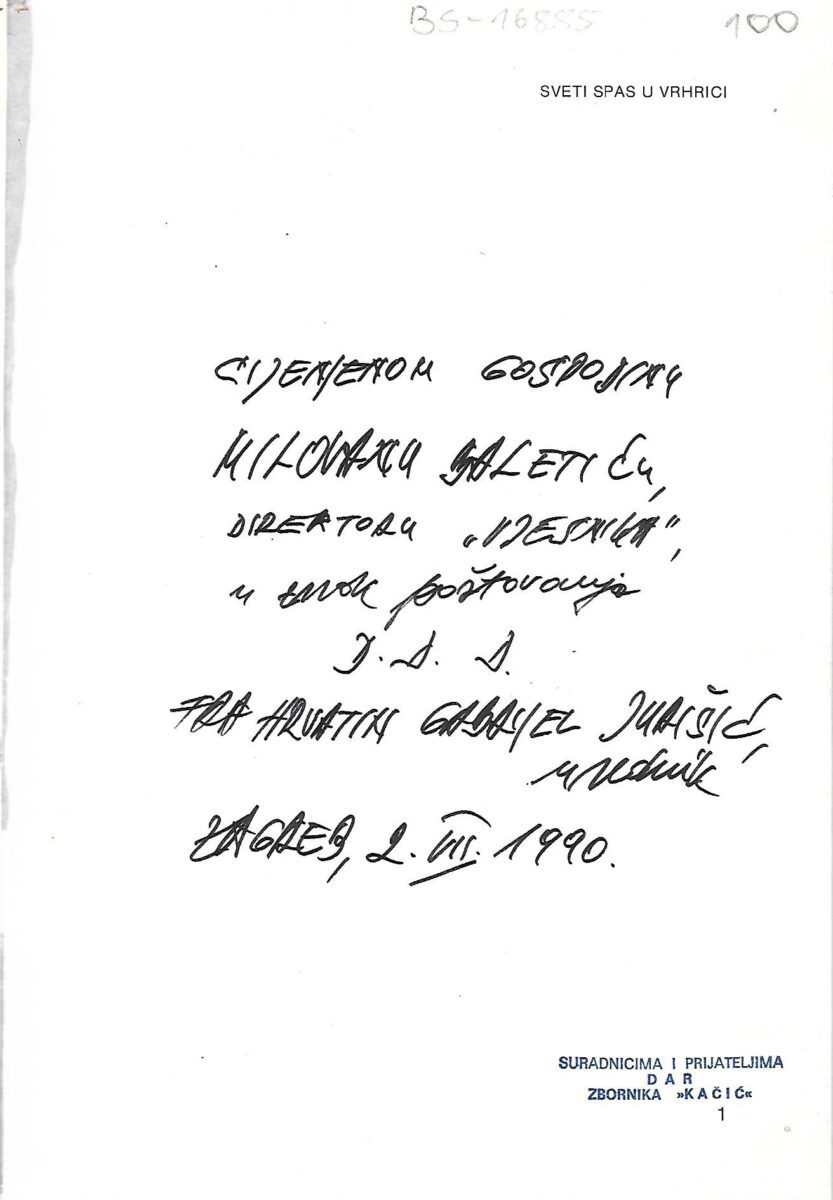 BS-16885 100
SVETI SPAS U VRHRICI
CIJENJENOM GOSPODINU
MILOVANU BALETIĆU,
DIREKTORU „VJESNIKA”,
u znak poštovanja
D. D. D.
FRA HRVATIN GABRIJEL JURIŠIĆ,
urednik
ZAGREB, 2. VII. 1990.
SURADNICIMA I PRIJATELJIMA
DAR
ZBORNIKA »KAČIĆ«
1